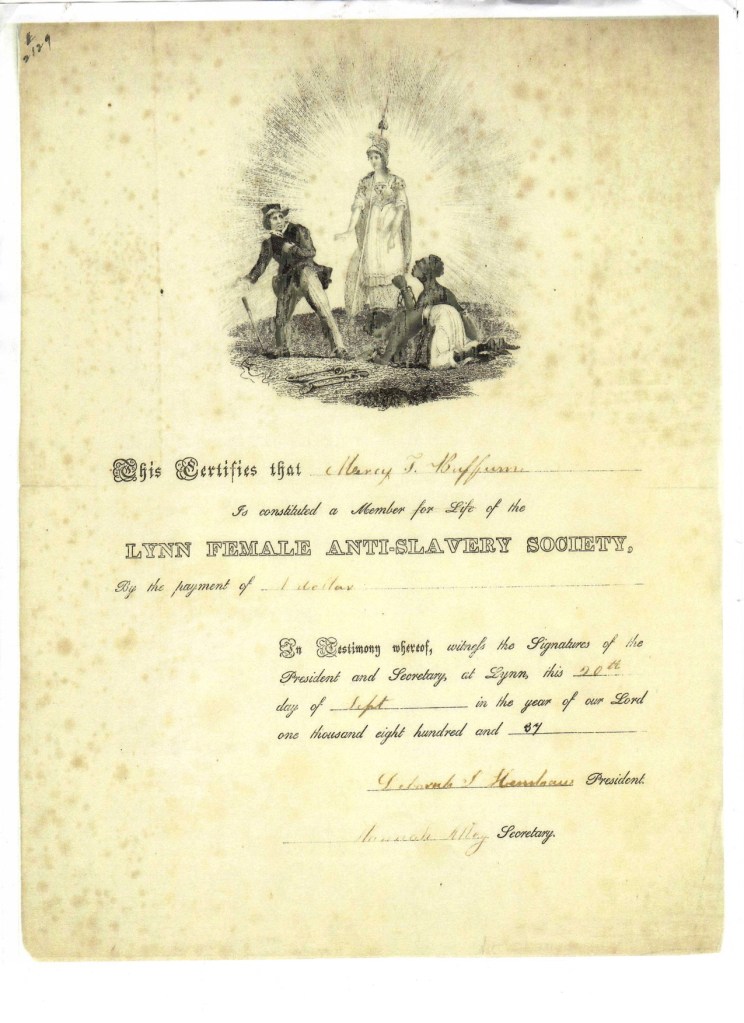 2329
This Certifies that Marcy T. Buffum
Is constituted a Member for Life of the
LYNN FEMALE ANTI-SLAVERY SOCIETY,
By the payment of 1 dollar
In Testimony whereof, witness the Signatures of the
President and Secretary, at Lynn, this 20th
day of Sept in the year of our Lord
one thousand eight hundred and 37
Deborah S Henshaw President.
Secretary.